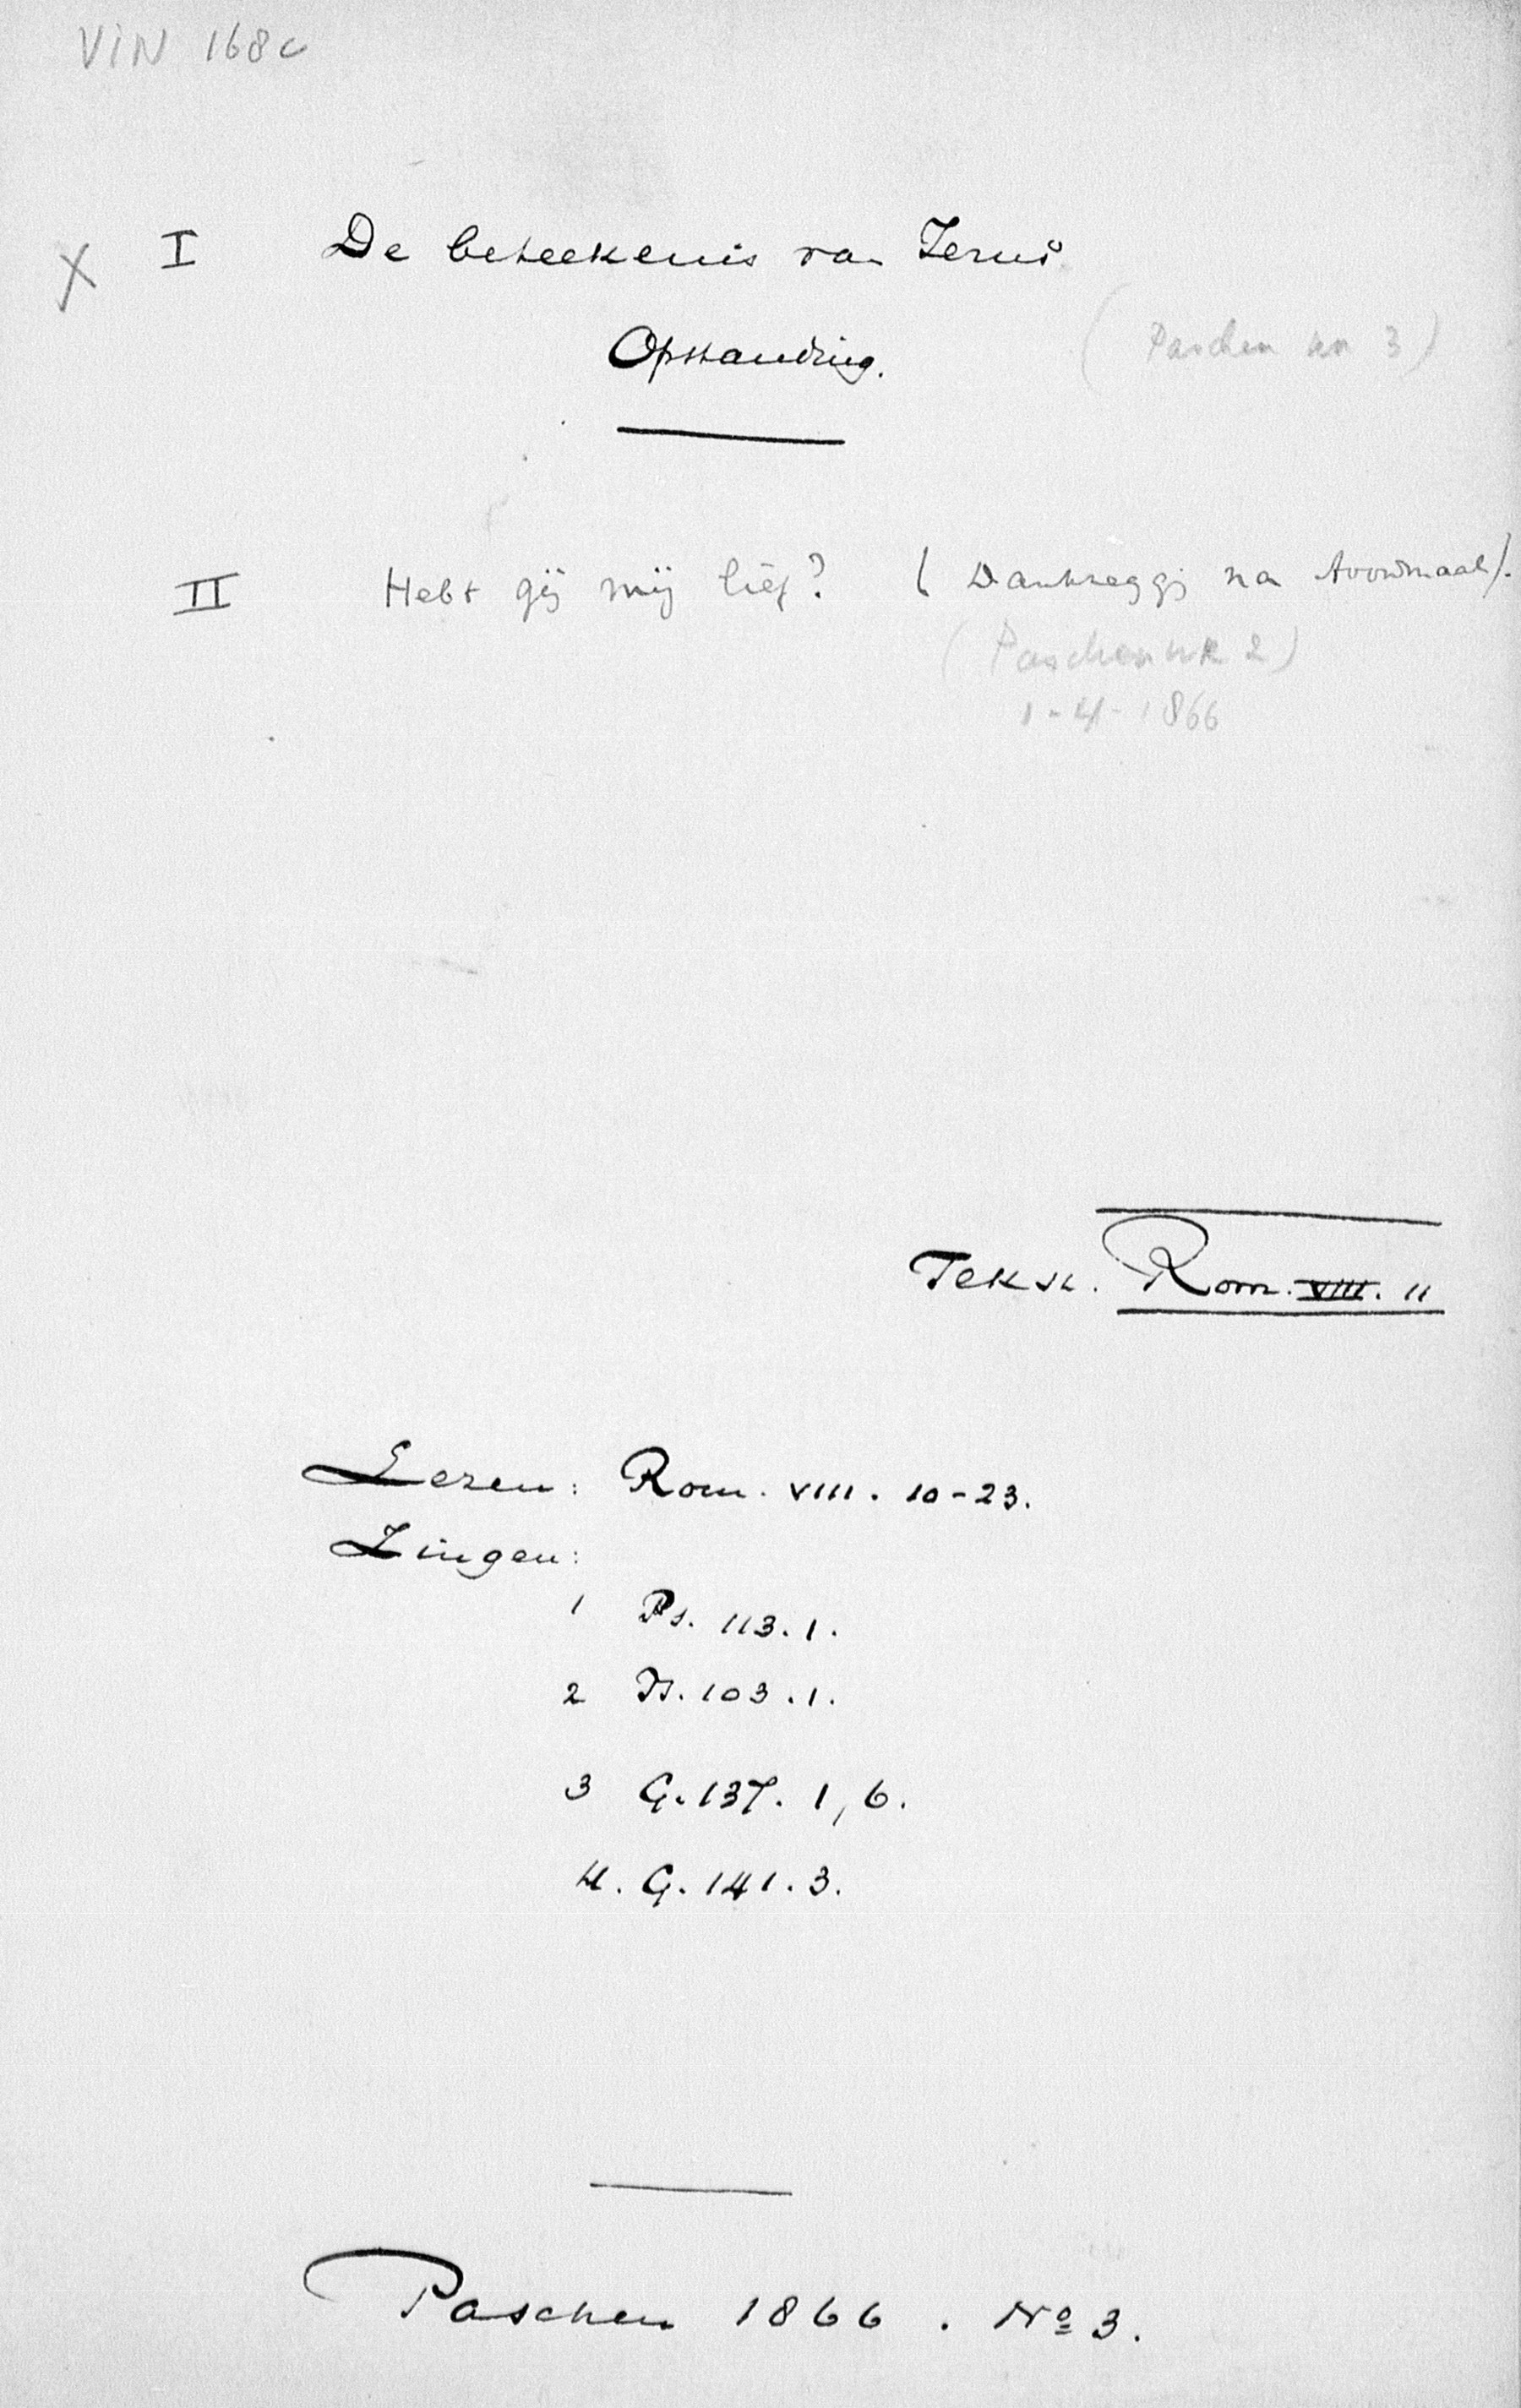 VIN 168c
X I De beteekenis van Jezus'
Opstanding.
(Paschen nr 3)
II Hebt gij mij lief? (Dankzeggg na Avondmaal).
(Paschen nr 2)
1-4-1866
Tekst. Rom. VIII. 11
Lezen: Rom. VIII. 10-23.
Zingen:
1 Ps. 113. 1.
2 Ps. 103. 1.
3 G. 137. 1, 6.
4. G. 141. 3.
Paschen 1866. No 3.